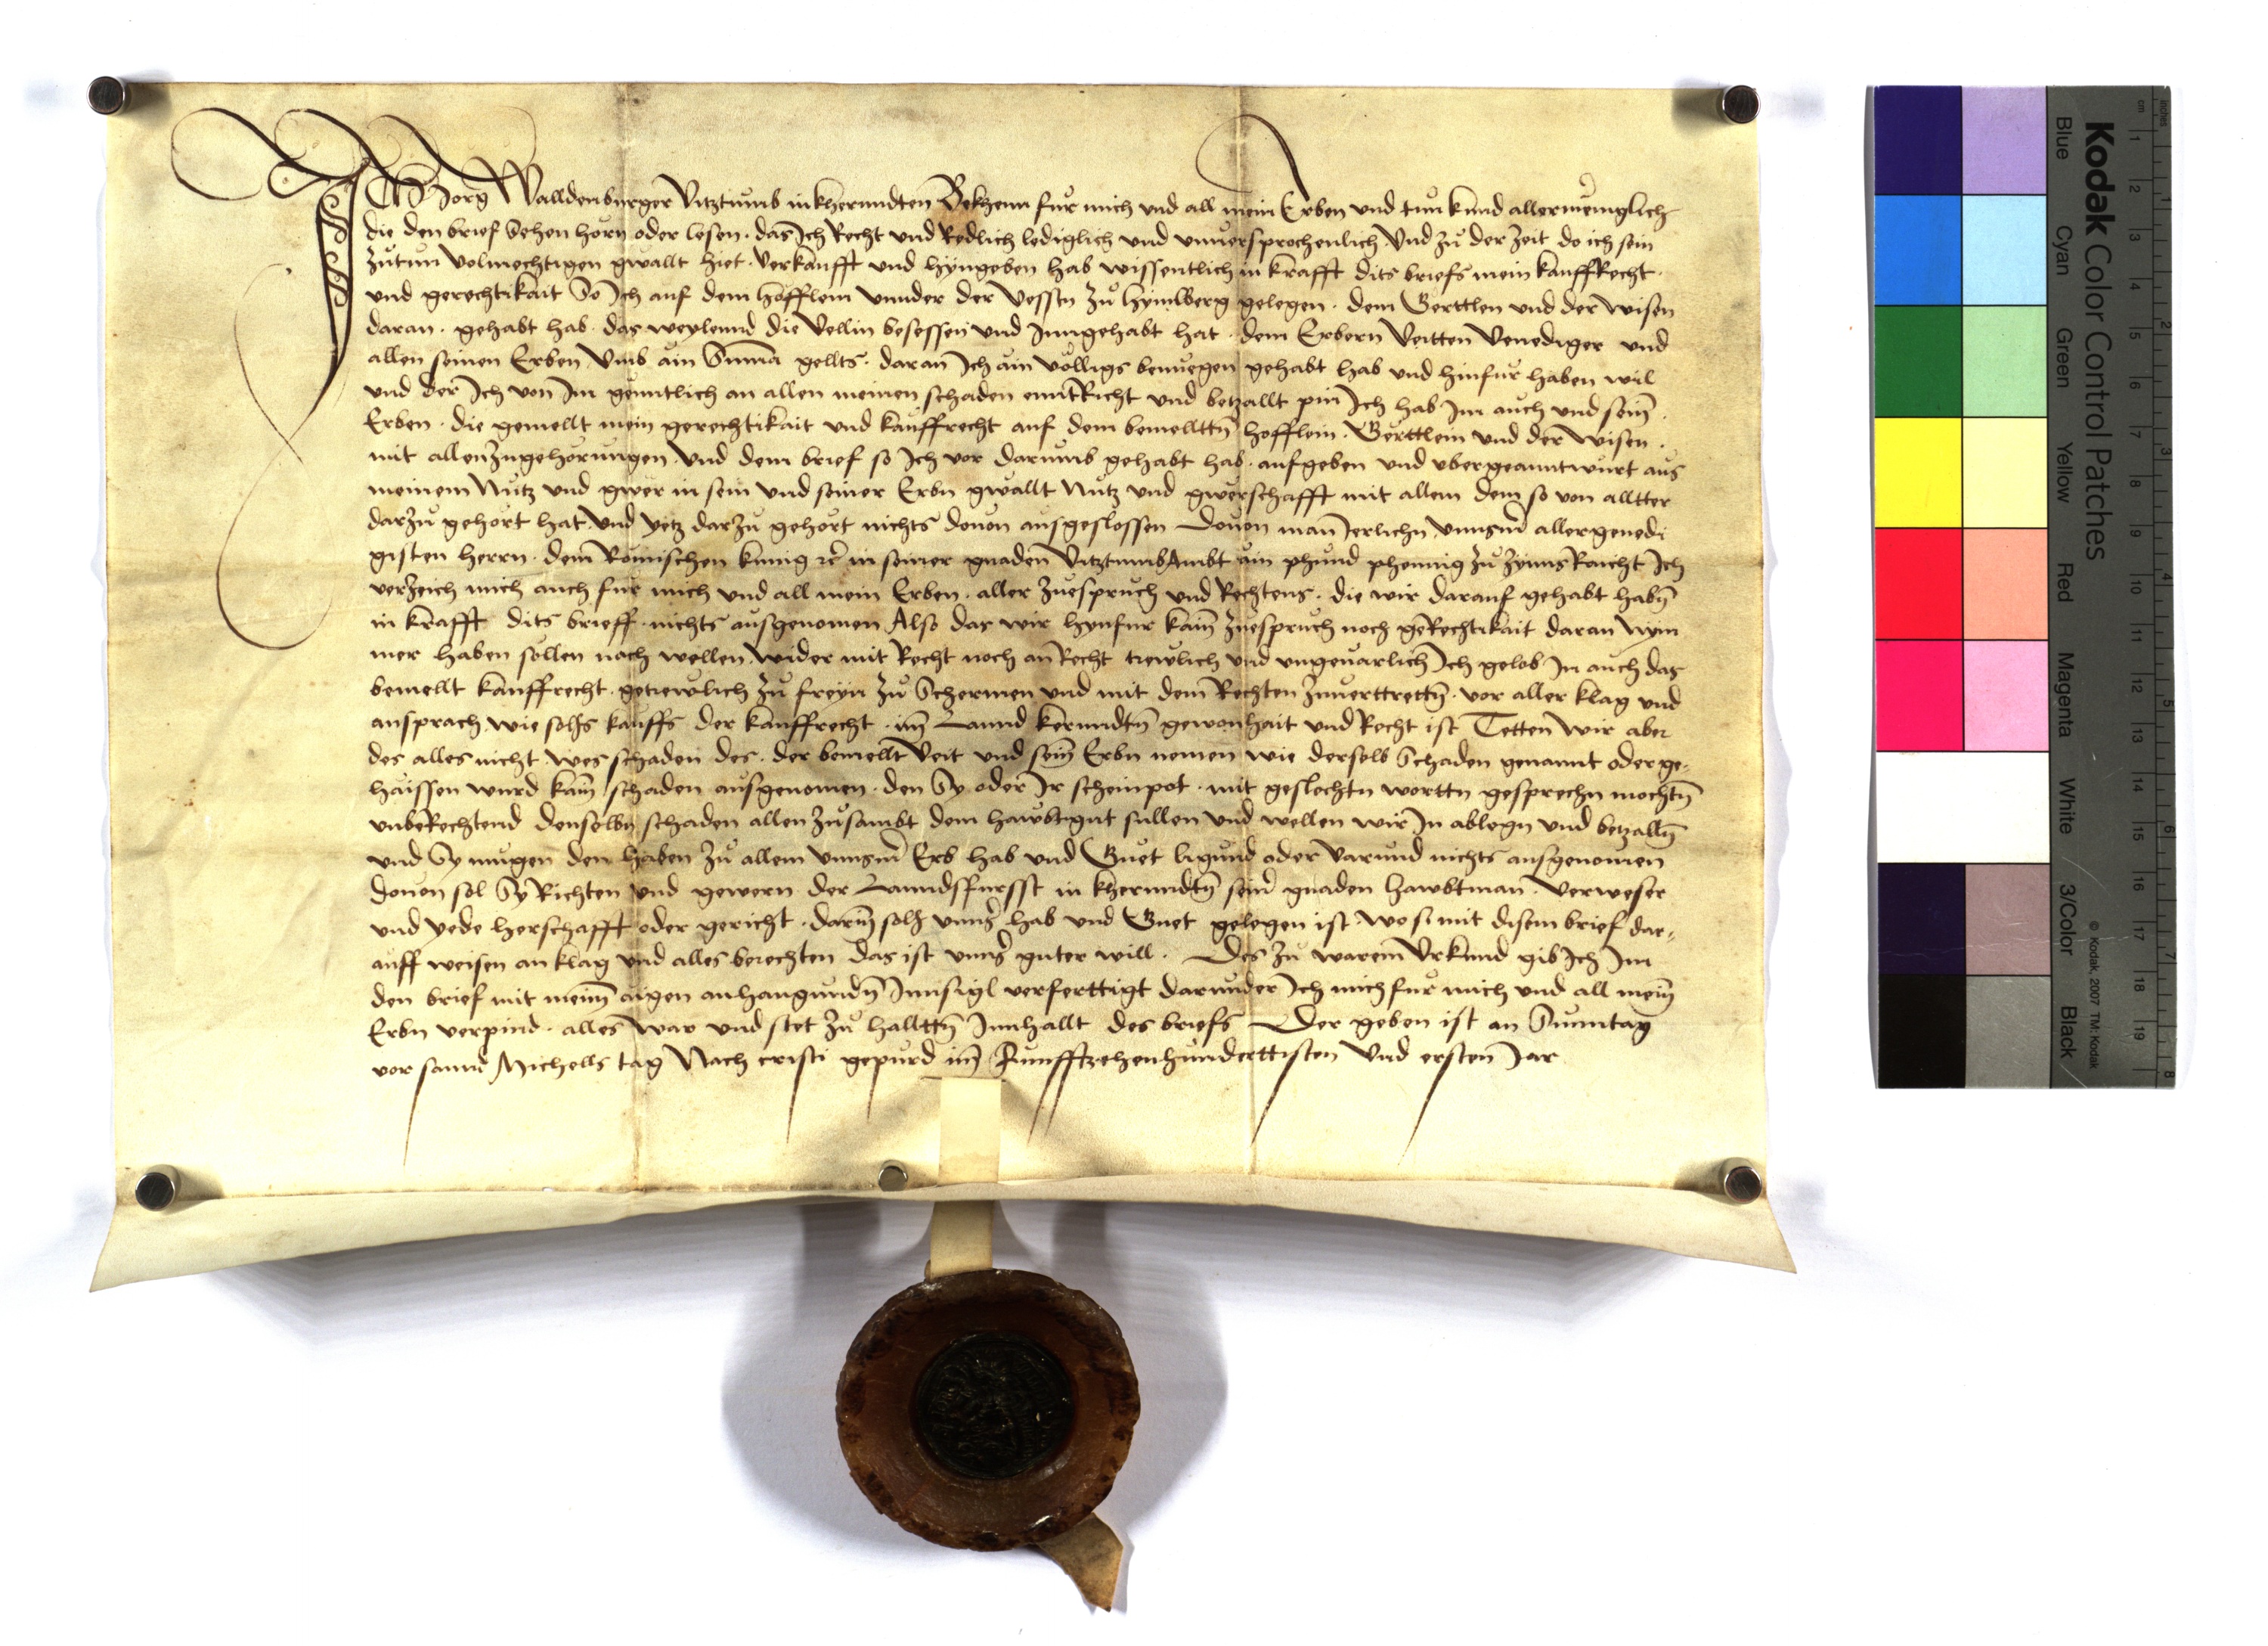 Ich Jorg Walldenburger Vitztumb in kherndten Bekhenn fur mich vnd all mein Erben vnd tun kund allermeniglich
die den brief Sehen horn oder lesen. das Ich Recht vnd Redlich lediglich vnd vnuersprochenlich Vnd zu der zeit do ich sein
zutun volmechtigen gwallt hiet. verkaufft vnd hyngeben hab wissentlich in krafft dits briefs mein kauffRecht.
vnd gerechtikait So Ich auf dem hofflein vnnder der Vesstn zu hymlberg gelegen. dem Gerttlen vnd der wisen
daran. gehabt hab. das weylennd die Vellin besessen vnd Inngehabt hat. dem Erbern Veitten Venediger vnd
allen seinen Erben Vmb ain Suma gellts. daran Ich ain volligs benuegen gehabt hab vnd hinfur haben wil
vnd der Ich von Im genntlich an allen meinen schaden enntRicht vnd betzallt pin Ich hab Im auch vnd sein.
Erben. die gemellt mein gerechtikait vnd kauffrecht auf dem bemelltn hofflein. Gerttlein vnd der wisen.
mit allen zugehorungen. vnd dem brief so Ich vor darumb gehabt hab. aufgeben vnd vbergeanntwurt aus
meinem Nutz vnd gwer in sein vnd seiner Erbn gwallt Nutz vnd gwerschafft mit allem dem so von alltter
darzu gehort hat. vnd yetz darzu gehort nichts douon ausgeslossen Douon man Ierlichn vnnsm allergenedi
gisten herrn. dem Romischen kunig rc in seiner gnaden VitztumbAmbt ain phund phennig zu zynns Raicht Ich
verzeich mich auch fur mich vnd all mein Erben. aller zuespruch vnd Rechtens. die wir darauf gehabt habn
in krafft dits brieff. nichts ausgenomen Also das wir hynfur kain zuespruch noch geRechtikait daran Nym
mer haben sollen noch wellen. wider mit Recht noch an Recht trewlich vnd vngeuarlich Ich gelob In auch das
bemellt kauffrecht. getrewlich zu freyn zu Schermen vnd mit dem Rechten zuuerttrettn. vor aller klag vnd
ansprach wie solhs kauffs der kauffrecht. im Lannd kerndtn gewonhait vnd Recht ist Tetten wir aber
des alles nicht. wes schaden des. der bemellt Veit vnd sein Erbn nemen wie derselb Schaden genannt oder ge-
haissen wurd kain schaden ausgenomen. den Sy oder Ir scheinpot. mit geslechtn worttn gesprechn mochtn
vnbeRechtend denselbn schaden allen zusambt dem hawbtgut sullen vnd wellen wir In ablegn vnd betzalln
vnd Sy mugen den haben zu allem vnnsm Erb hab vnd Guet ligund oder varund nichts ausgenomen
douon sol Sy Richten vnd gewern der Lanndsfursst in kherndtn seinr gnaden hawbtman. verweser
vnd yede herschafft oder gericht. darin solh vnnsr hab vnd Guet gelegen ist. wo si mit disem brief dar-
auff weisen an klag vnd alles berechten das ist vnnsr guter will. Des zu warem Vrkund gib Ich Im
den brief mit meinn aigen anhangundn Innsigl verferttigt darunder Ich mich fur mich vnd all mein
Erbn verpind. alles war vnd stet zu halltn Innhallt des briefs Der geben ist an Sunntag
vor sannd Michells tag Nach cristi gepurd im Funfftzehenhunderttisten Vnd ersten Jar
Kodak Color Control Patches
Blue Cyan Green Yellow Red Magenta White 3/Color Black
© Kodak, 2007 TM: Kodak
cm 1 2 3 4 5 6 7 8 9 10 11 12 13 14 15 16 17 18 19
inches 1 2 3 4 5 6 7 8